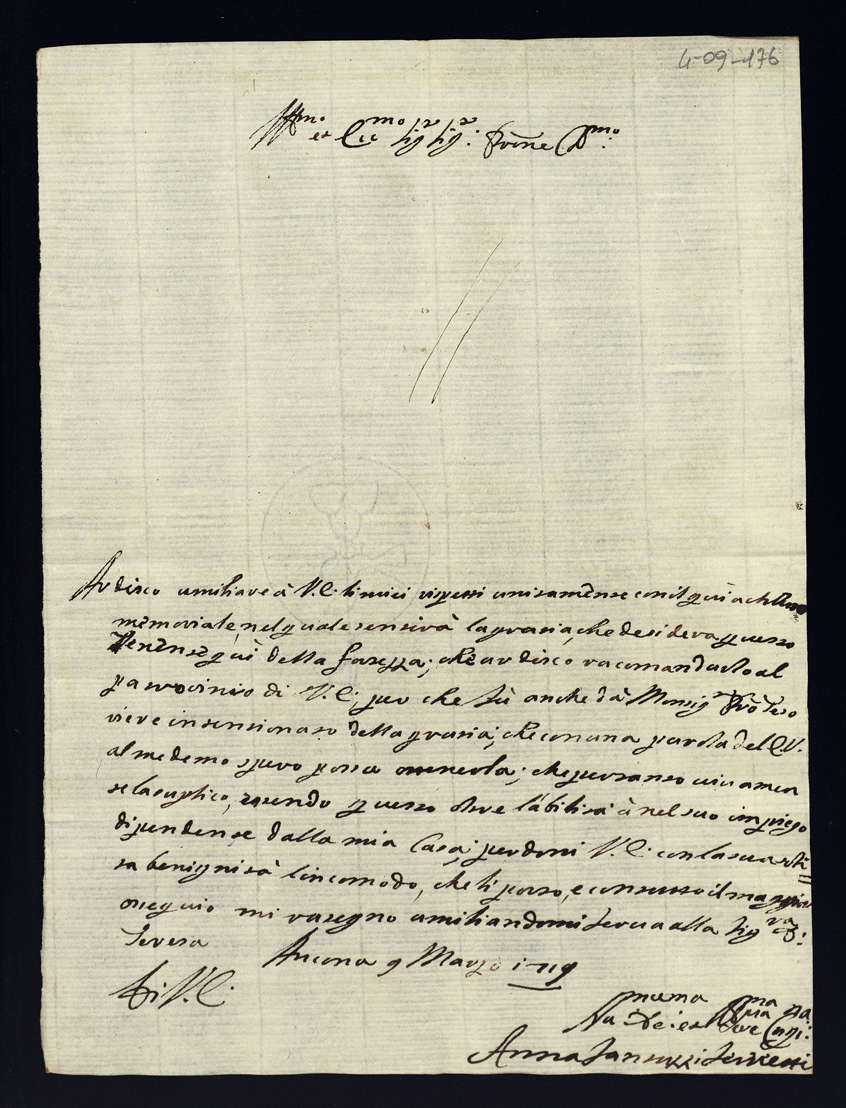 4-09-176
Ill.mo et Ecc.mo Sig.r Sig.r Prone
Ardisco umiliare à V.E. li miei rispetti unitamente con il qui achluso
memoriale, nel quale sentirà la grazia, che desidera questo
Tenente qui della fortezza; che ardisco racomandarlo al
patrocinio di V.E., per che sù anche dà Monsig.r
viere intentionato della grazia, che con una parola del E.V.
al medemo spero possa ottenerla; che pertanto vivamen
te la suplico, essendo questo oltre l'abilità à nel suo impiego
dipendente dalla mia Casa; perdoni V.E. con la sua soli=
ta benignità l'incomodo, che li porto, e con tutto il maggior
ossequio mi rasegno umiliandomi serva alla Sig.ra D.
Teresa
Ancona 9 Marzo 1719
Di V.E.
Anna